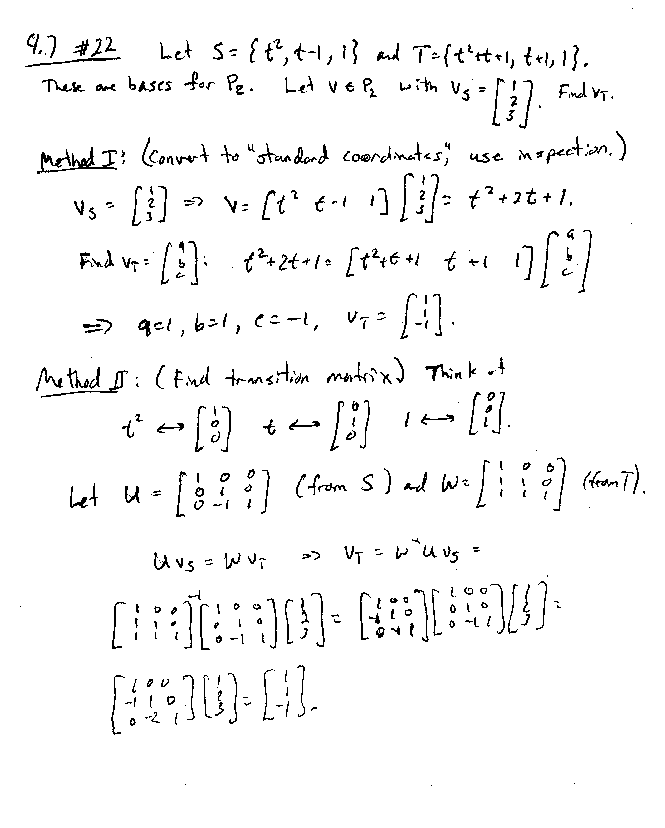 4.7 #22 Let S = {t², t-1, 1} and T = {t²+t+1, t+1, 1}.
These are bases for P₂. Let v ∈ P₂ with v_S = [1 2 3]. Find v_T.
Method I: (Convert to "standard coordinates," use inspection.)
v_S = [1 2 3] ⇒ v = [t² t-1 1] [1 2 3] = t²+2t+1.
Find v_T = [a b c]: t²+2t+1 = [t²+t+1 t+1 1] [a b c]
⇒ a=1, b=1, c=-1, v_T = [1 1 -1].
Method II: (Find transition matrix) Think of
t² ↔ [1 0 0] t ↔ [0 1 0] 1 ↔ [0 0 1].
Let U = [1 0 0; 0 1 0; 0 -1 1] (from S) ad W = [1 0 0; 1 1 0; 1 1 1] (from T).
U v_S = W v_T ⇒ v_T = W⁻¹ U v_S =
[1 0 0; 1 1 0; 1 1 1]⁻¹ [1 0 0; 0 1 0; 0 -1 1] [1 2 3] = [1 0 0; -1 1 0; 0 -1 1] [1 0 0; 0 1 0; 0 -1 1] [1 2 3] =
[1 0 0; -1 1 0; 0 -2 1] [1 2 3] = [1 1 -1].